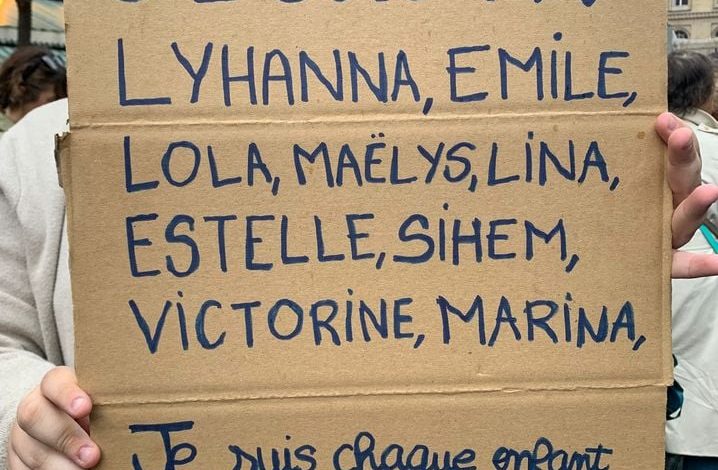 LYHANNA, EMILE,
LOLA, MAËLYS, LINA,
ESTELLE, SIHEM,
VICTORINE, MARINA,
Je suis chaque enfant